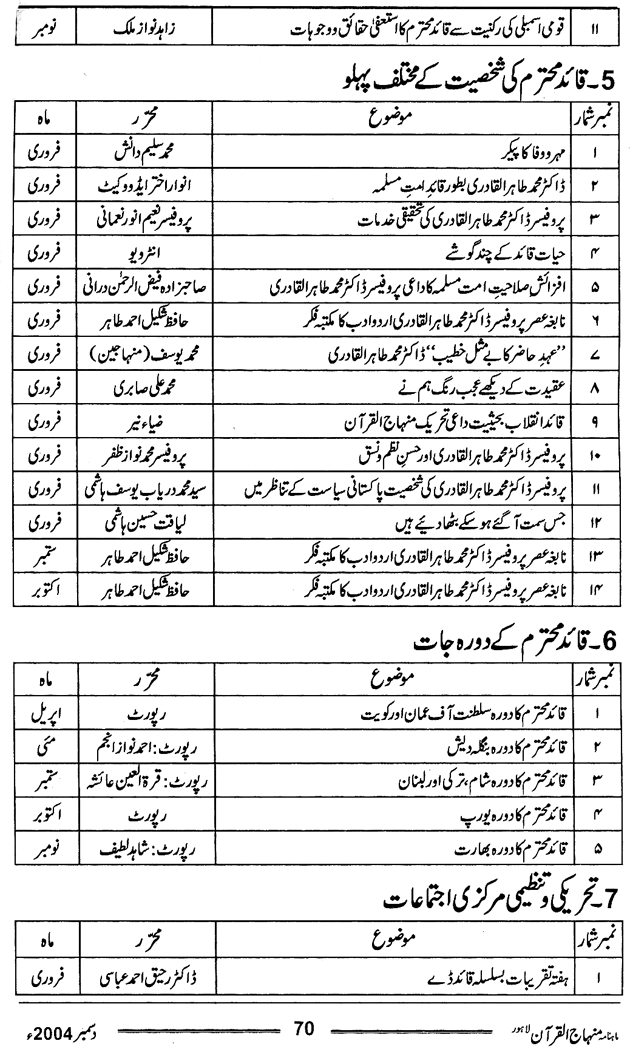 ۱۱ قومی اسمبلی کی رکنیت سے قائد محترم کا استعفیٰ حقائق و وجوہات زاہد نواز ملک نومبر
5۔ قائد محترم کی شخصیت کے مختلف پہلو
نمبر شمار موضوع محرّر ماہ
۱ مہر و وفا کا پیکر محمد سلیم دانش فروری
۲ ڈاکٹر محمد طاہر القادری بطور قائد امتِ مسلمہ انوار اختر ایڈووکیٹ فروری
۳ پروفیسر ڈاکٹر محمد طاہر القادری کی تحقیقی خدمات پروفیسر نعیم انور نعمانی فروری
۴ حیات قائد کے چند گوشے انٹرویو فروری
۵ افزائش صلاحیت امت مسلمہ کا داعی پروفیسر ڈاکٹر محمد طاہر القادری صاحبزادہ فیض الرحمٰن درانی فروری
۶ نابغہ عصر پروفیسر ڈاکٹر محمد طاہر القادری اردو ادب کا مکتبہ فکر حافظ شکیل احمد طاہر فروری
۷ ’’عہد حاضر کا بے مثل خطیب‘‘ ڈاکٹر محمد طاہر القادری محمد یوسف (منہاجین) فروری
۸ عقیدت کے دیکھے عجب رنگ ہم نے محمد علی صابری فروری
۹ قائد انقلاب بحیثیت داعی تحریک منہاج القرآن ضیاء نیر فروری
۱۰ پروفیسر ڈاکٹر محمد طاہر القادری اور حسنِ نظم و نسق پروفیسر محمد نواز ظفر فروری
۱۱ پروفیسر ڈاکٹر محمد طاہر القادری کی شخصیت پاکستانی سیاست کے تناظر میں سید محمد دریاب یوسف ہاشمی فروری
۱۲ جس سمت آ گئے ہو سکے بٹھا دیئے ہیں لیاقت حسین ہاشمی فروری
۱۳ نابغہ عصر پروفیسر ڈاکٹر محمد طاہر القادری اردو ادب کا مکتبہ فکر حافظ شکیل احمد طاہر ستمبر
۱۴ نابغہ عصر پروفیسر ڈاکٹر محمد طاہر القادری اردو ادب کا مکتبہ فکر حافظ شکیل احمد طاہر اکتوبر
6۔ قائد محترم کے دورہ جات
نمبر شمار موضوع محرّر ماہ
۱ قائد محترم کا دورہ سلطنت آف عمان اور کویت رپورٹ اپریل
۲ قائد محترم کا دورہ بنگلہ دیش رپورٹ: احمد نواز انجم مئی
۳ قائد محترم کا دورہ شام، ترکی اور لبنان رپورٹ: قرۃ العین عائشہ ستمبر
۴ قائد محترم کا دورہ یورپ رپورٹ اکتوبر
۵ قائد محترم کا دورہ بھارت رپورٹ: شاہد لطیف نومبر
7۔ تحریکی و تنظیمی مرکزی اجتماعات
نمبر شمار موضوع محرّر ماہ
۱ ہفتہ تقریبات بسلسلہ قائد ڈے ڈاکٹر رحیق احمد عباسی فروری
ماہنامہ منہاج القرآن لاہور 70 دسمبر 2004ء